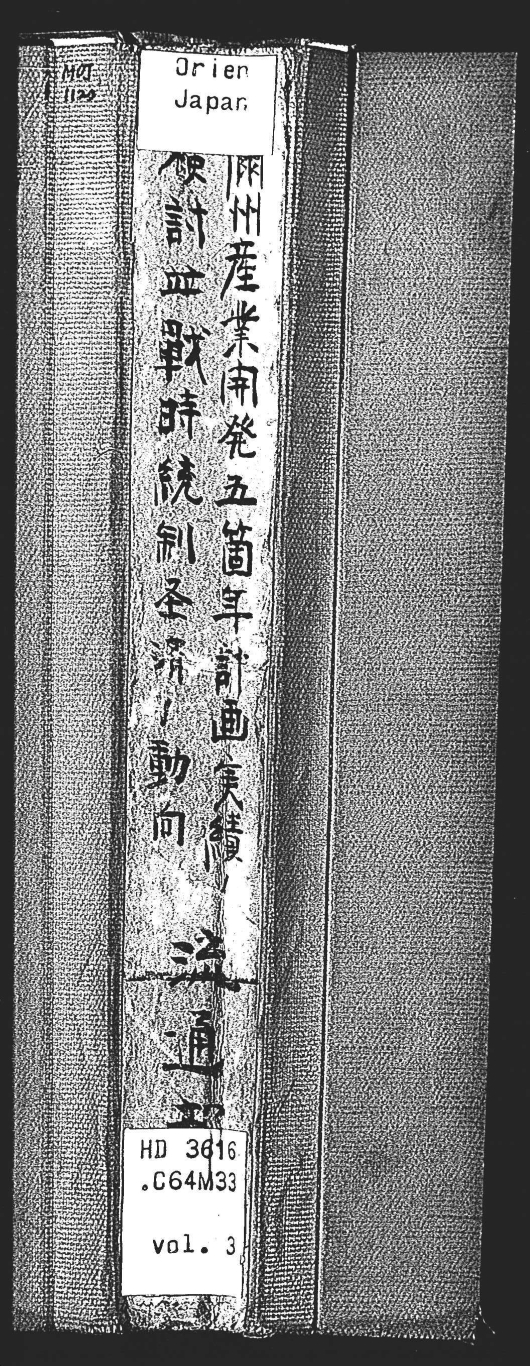 MOJ
1120
Orien
Japan
州産業開発五箇年計画実績ノ
検討並戦時統制圣済ノ動向
流通
HD 3616
.C64M33
vol. 3